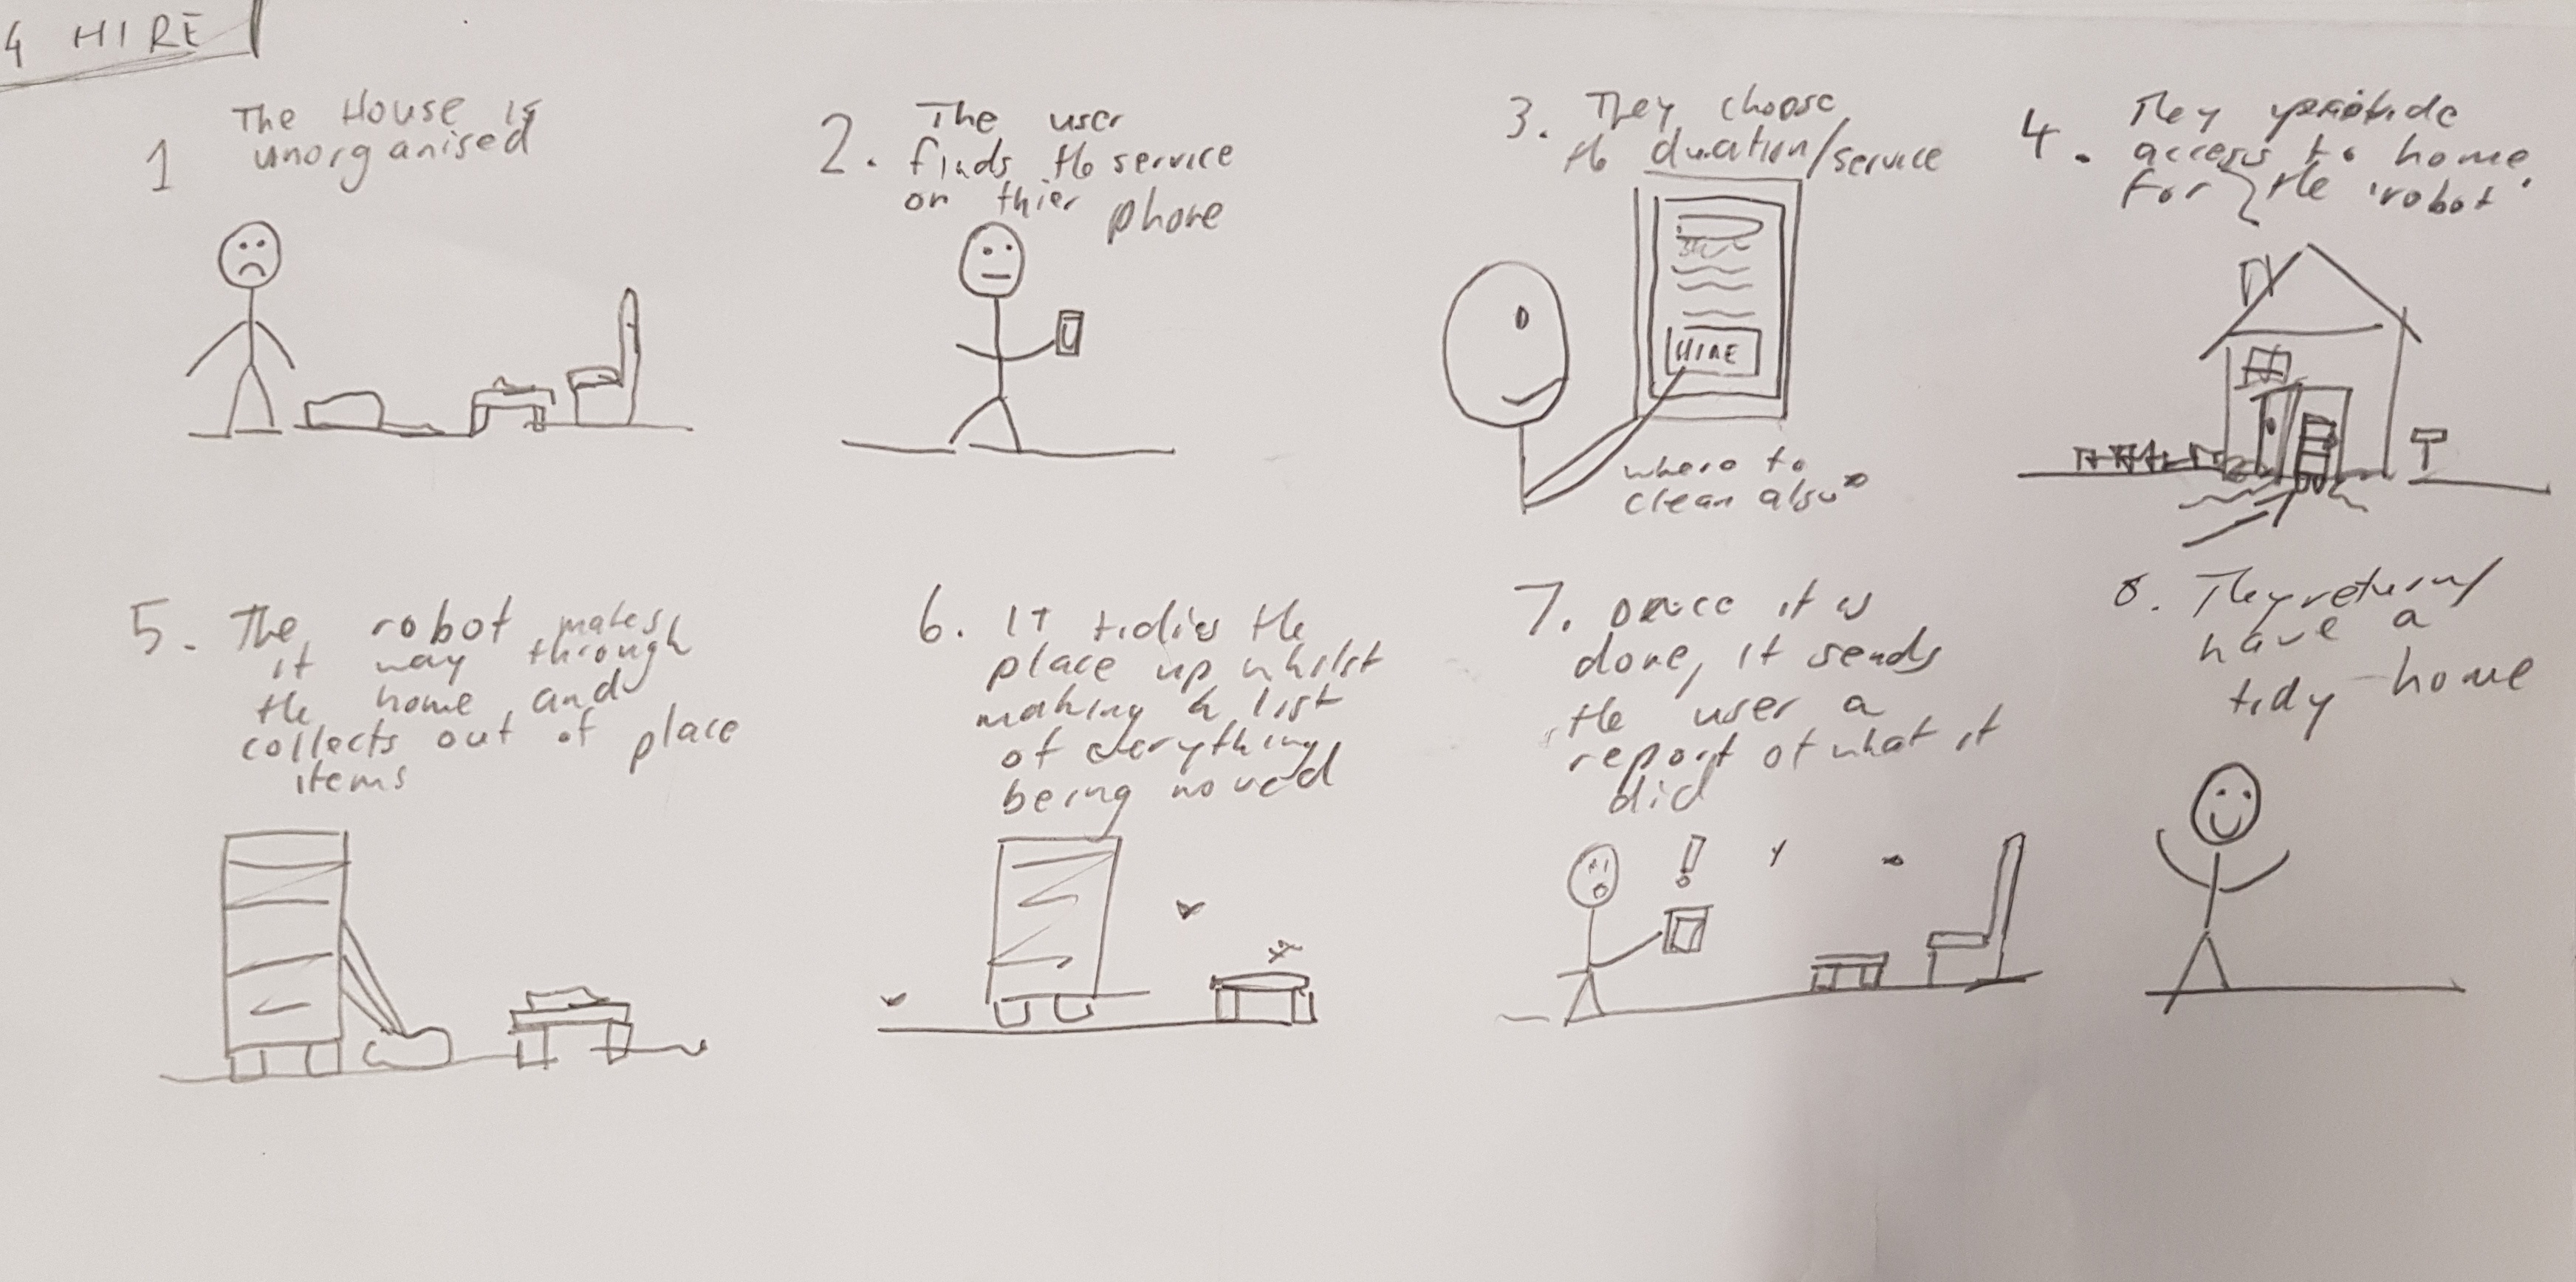 4 HIRE
1
The House is
unorganised
2.
The user
finds the service
on thier phone
3. They choose
the duration/service
HIRE
where to
clean also*
4. They provide
access to home
for the 'robot'
5. The robot makes
it way through
the home and
collects out of place
items
6. IT tidies the
place up whilst
making a list
of everything
being moved
7. once it is
done, it sends
the user a
report of what it
did
!
8. They return/
have a
tidy home